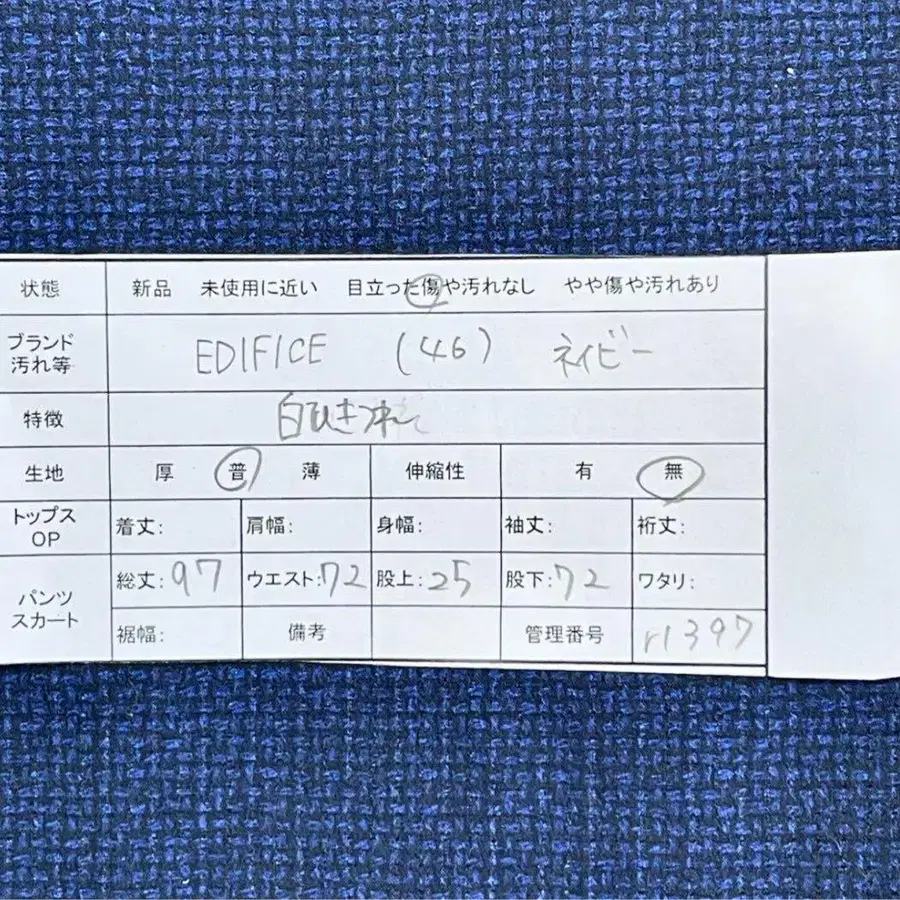 状態 新品 未使用に近い 目立った傷や汚れなし やや傷や汚れあり
ブランド
汚れ等 EDIFICE (46) ネイビー
特徴
生地 厚 普 薄 伸縮性 有 無
トップス
OP 着丈: 肩幅: 身幅: 袖丈: 裄丈:
パンツ
スカート 総丈:97 ウエスト:72 股上:25 股下:72 ワタリ:
裾幅: 備考 管理番号 r1397